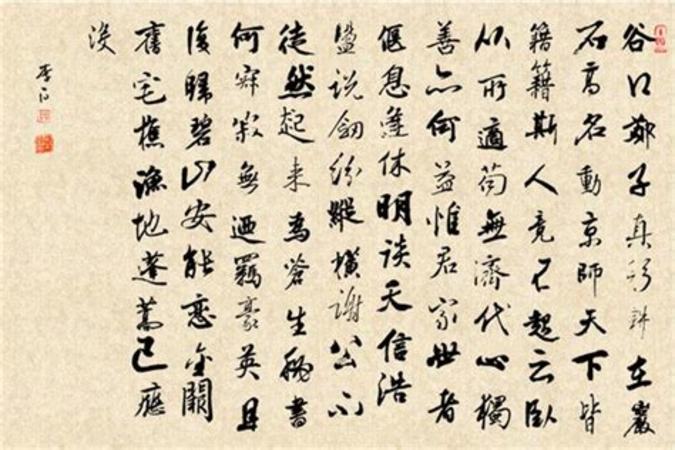 谷口鄭子真躬耕在巖
石高名動京師天下皆
籍籍斯人竟不起云臥
从所適苟無濟代心獨
善亦何益惟君家世者
偃息逢休明談天信浩
盪説劒紛縱橫謝公不
徒然起来為蒼生秘書
何寂寂無迺羈豪英且
復歸碧山安能戀金闕
舊宅樵漁地蓬蒿已應
没
李白